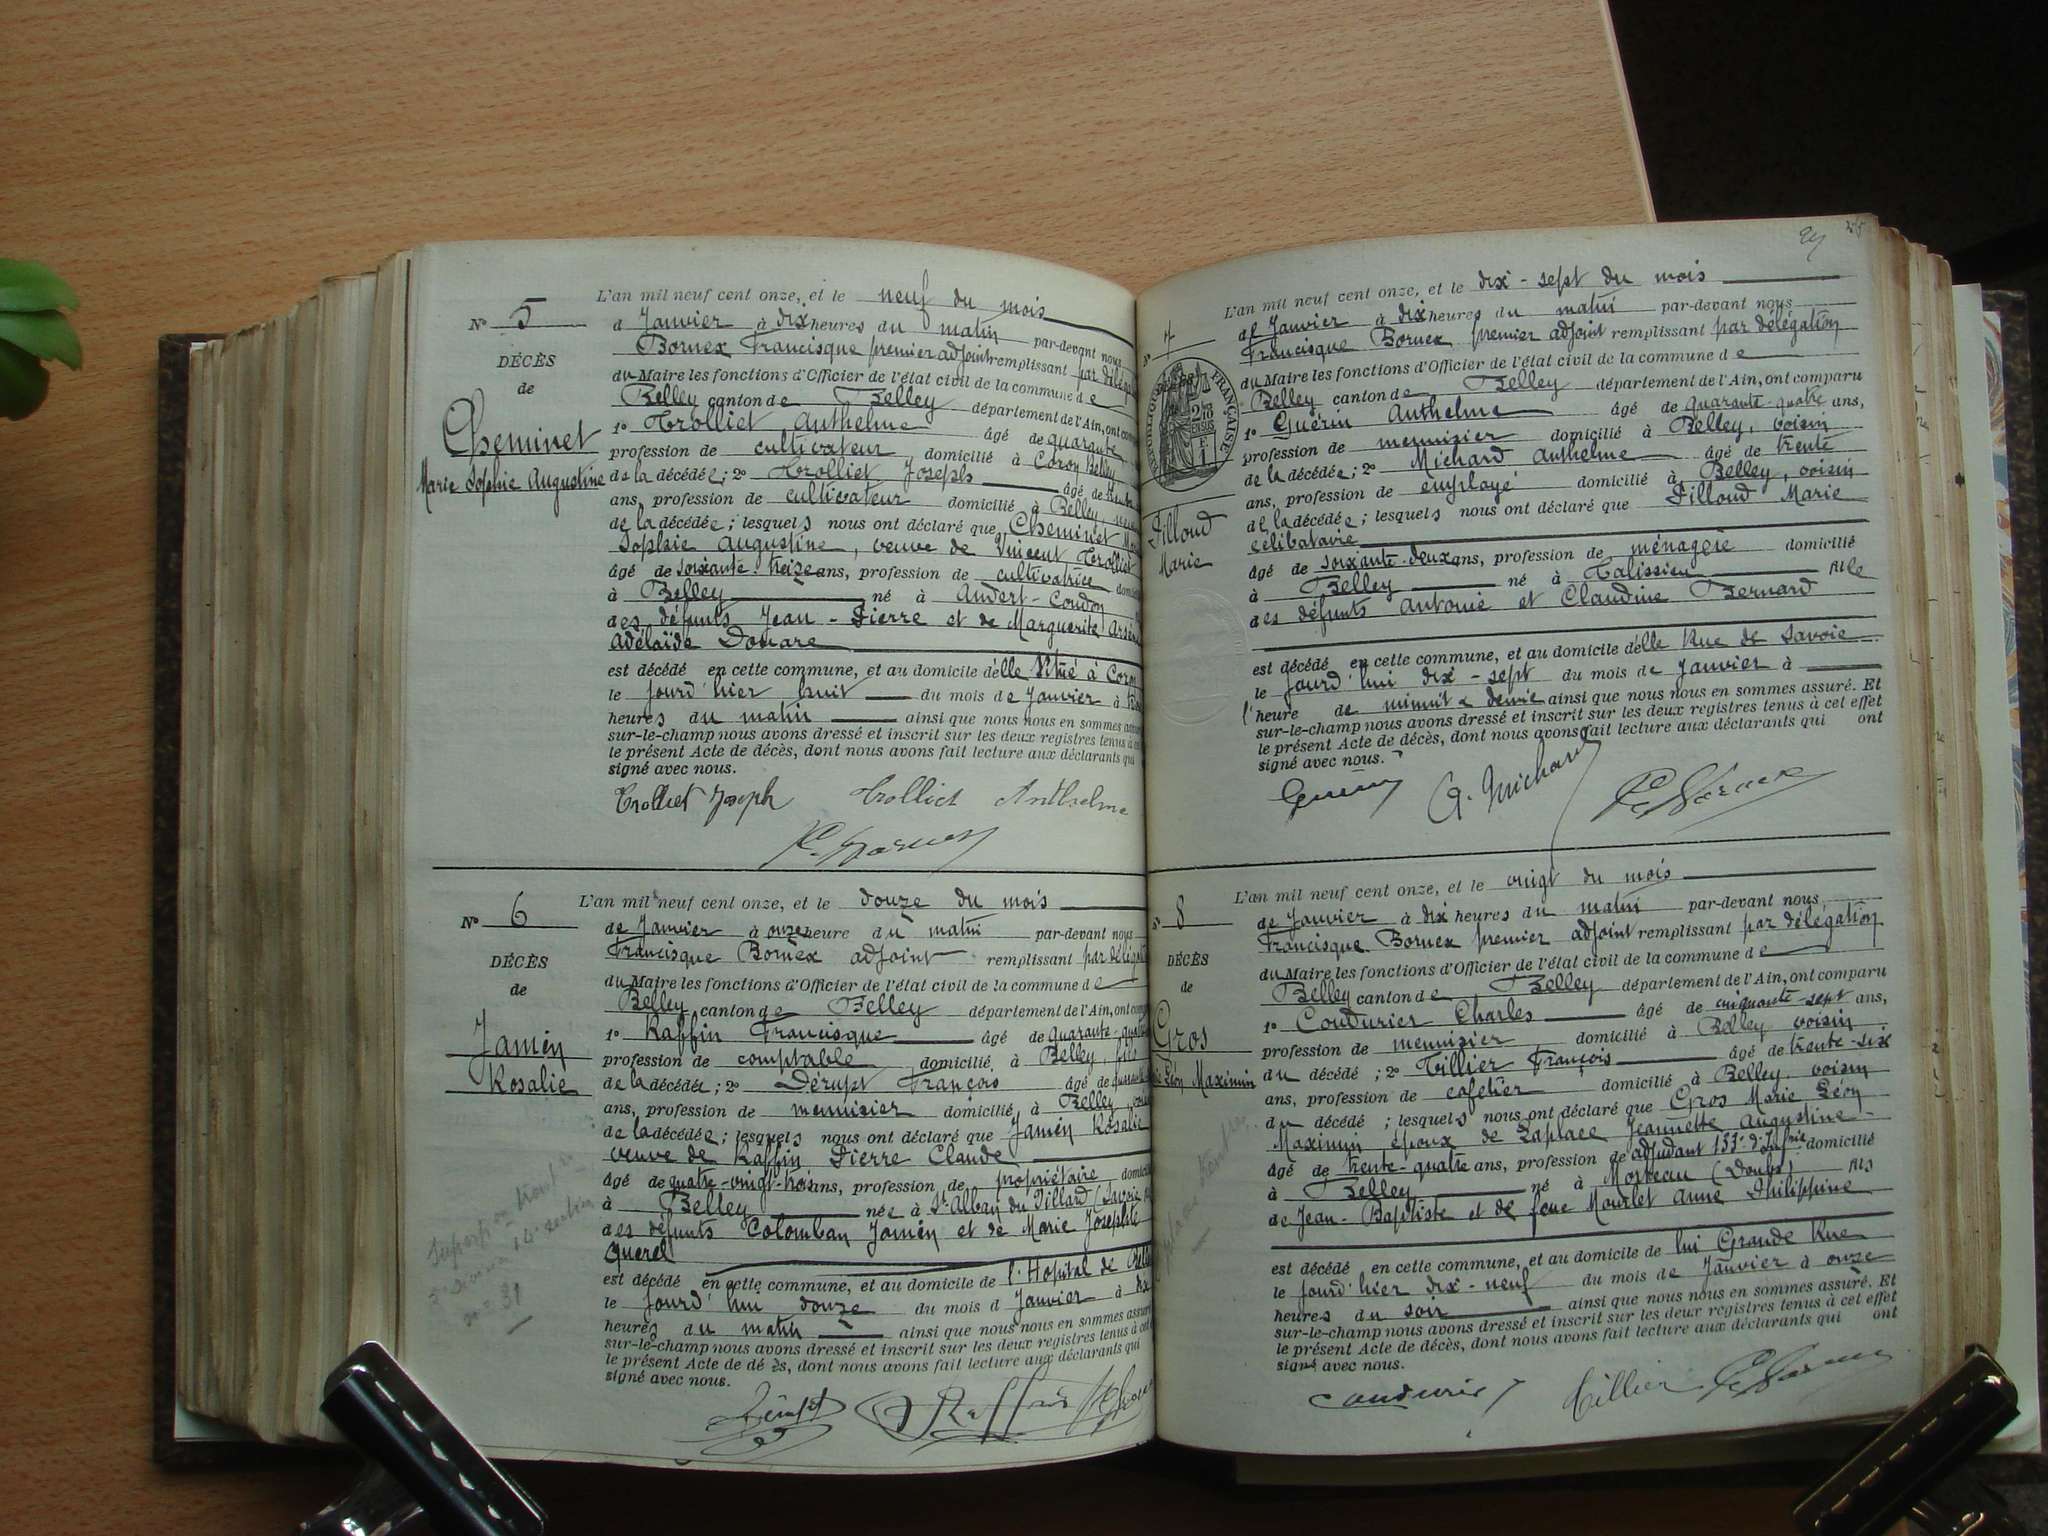 N° 5
DÉCÈS
de
Cheminet
Marie Sophie Augustine
L'an mil neuf cent onze, et le neuf du mois
d Janvier à dix heures du matin par-devant nous
Bornex Francisque premier adjoint remplissant par délég
du Maire les fonctions d'Officier de l'état civil de la commune de
Belley canton de Belley département de l'Ain, ont com
1° Trolliet Anthelme âgé de quarante
profession de cultivateur domicilié à Coron Belley
de la décédée; 2° Trolliet Joseph âgé de
ans, profession de cultivateur domicilié à Belley
de la décédée; lesquels nous ont déclaré que Cheminet
Sophie Augustine, veuve de Vincent Trolliet
âgé de soixante-treize ans, profession de cultivatrice
à Belley né à Andert-Condon
des défunts Jean-Pierre et de Marguerite
Adélaïde Douare
est décédé en cette commune, et au domicile d'elle situé à Coron
le jourd'hier huit du mois de Janvier à
heures du matin ainsi que nous nous en sommes
sur-le-champ nous avons dressé et inscrit sur les deux registres tenus à
le présent Acte de décès, dont nous avons fait lecture aux déclarants qui
signé avec nous.
Trolliet Joseph Trolliet Anthelme
N° 6
DÉCÈS
de
Jamén
Rosalie
L'an mil neuf cent onze, et le douze du mois
de Janvier à onze heure du matin par-devant nous
Francisque Bornex adjoint remplissant par délég
du Maire les fonctions d'Officier de l'état civil de la commune de
Belley canton de Belley département de l'Ain, ont
1° Raffin Francisque âgé de quarante-
profession de comptable domicilié à Belley, fils
de la décédée; 2° Dérupt François âgé de
ans, profession de menuisier domicilié à Belley
de la décédée; lesquels nous ont déclaré que Jamén Rosalie
veuve de Raffin Pierre Claude
âgé de quatre-vingt-trois ans, profession de propriétaire
à Belley née à St-Alban du Villard (Savoie
des défunts Colomban Jamén et de Marie Josephte
Querel
est décédé en cette commune, et au domicile de l'Hôpital de
le jourd'hui douze du mois d Janvier à
heures du matin ainsi que nous nous en sommes assuré
sur-le-champ nous avons dressé et inscrit sur les deux registres tenus à
le présent Acte de dé ès, dont nous avons fait lecture aux déclarants qui
signé avec nous.
N° 7
RÉPUBLIQUE FRANÇAISE
2/10 EN SUS
Pilloud
Marie
L'an mil neuf cent onze, et le dix-sept du mois
de Janvier à dix heures du matin par-devant nous
Francisque Bornex premier adjoint remplissant par délégation
du Maire les fonctions d'Officier de l'état civil de la commune de
Belley canton de Belley département de l'Ain, ont comparu
1° Guérin Anthelme âgé de quarante-quatre ans,
profession de menuisier domicilié à Belley, voisin
de la décédée; 2° Michard Anthelme âgé de trente
ans, profession de employé domicilié à Belley, voisin
de la décédée; lesquels nous ont déclaré que Pilloud Marie
célibataire
âgé de soixante-deux ans, profession de ménagère domicilié
à Belley né à Talissieu fille
des défunts Antoine et Claudine Bernard
est décédé en cette commune, et au domicile d'elle Rue de Savoie
le jourd'hui dix-sept du mois de Janvier à
l'heure de minuit & demie ainsi que nous nous en sommes assuré. Et
sur-le-champ nous avons dressé et inscrit sur les deux registres tenus à cet effet
le présent Acte de décès, dont nous avons fait lecture aux déclarants qui ont
signé avec nous.
A. Michard
N° 8
DÉCÈS
de
Gros
Léon Maximin
L'an mil neuf cent onze, et le vingt du mois
de Janvier à dix heures du matin par-devant nous
Francisque Bornex premier adjoint remplissant par délégation
du Maire les fonctions d'Officier de l'état civil de la commune de
Belley canton de Belley département de l'Ain, ont comparu
1° Coudurier Charles âgé de cinquante-sept ans,
profession de menuisier domicilié à Belley voisin
du décédé; 2° Tillier François âgé de trente-six
ans, profession de cafetier domicilié à Belley, voisin
du décédé; lesquels nous ont déclaré que Gros Marie Léon
Maximin époux de Laplace Jeannette Augustine
âgé de trente-quatre ans, profession de adjudant 133e d'Infrie domicilié
à Belley né à Morteau (Doubs) fils
de Jean-Baptiste et de feue Mourlet Anne Philippine
est décédé en cette commune, et au domicile de lui Grande Rue
le jourd'hier dix-neuf du mois de Janvier à onze
heures du soir ainsi que nous nous en sommes assuré. Et
sur-le-champ nous avons dressé et inscrit sur les deux registres tenus à cet effet
le présent Acte de décès, dont nous avons fait lecture aux déclarants qui ont
signé avec nous.
Coudurier Tillier